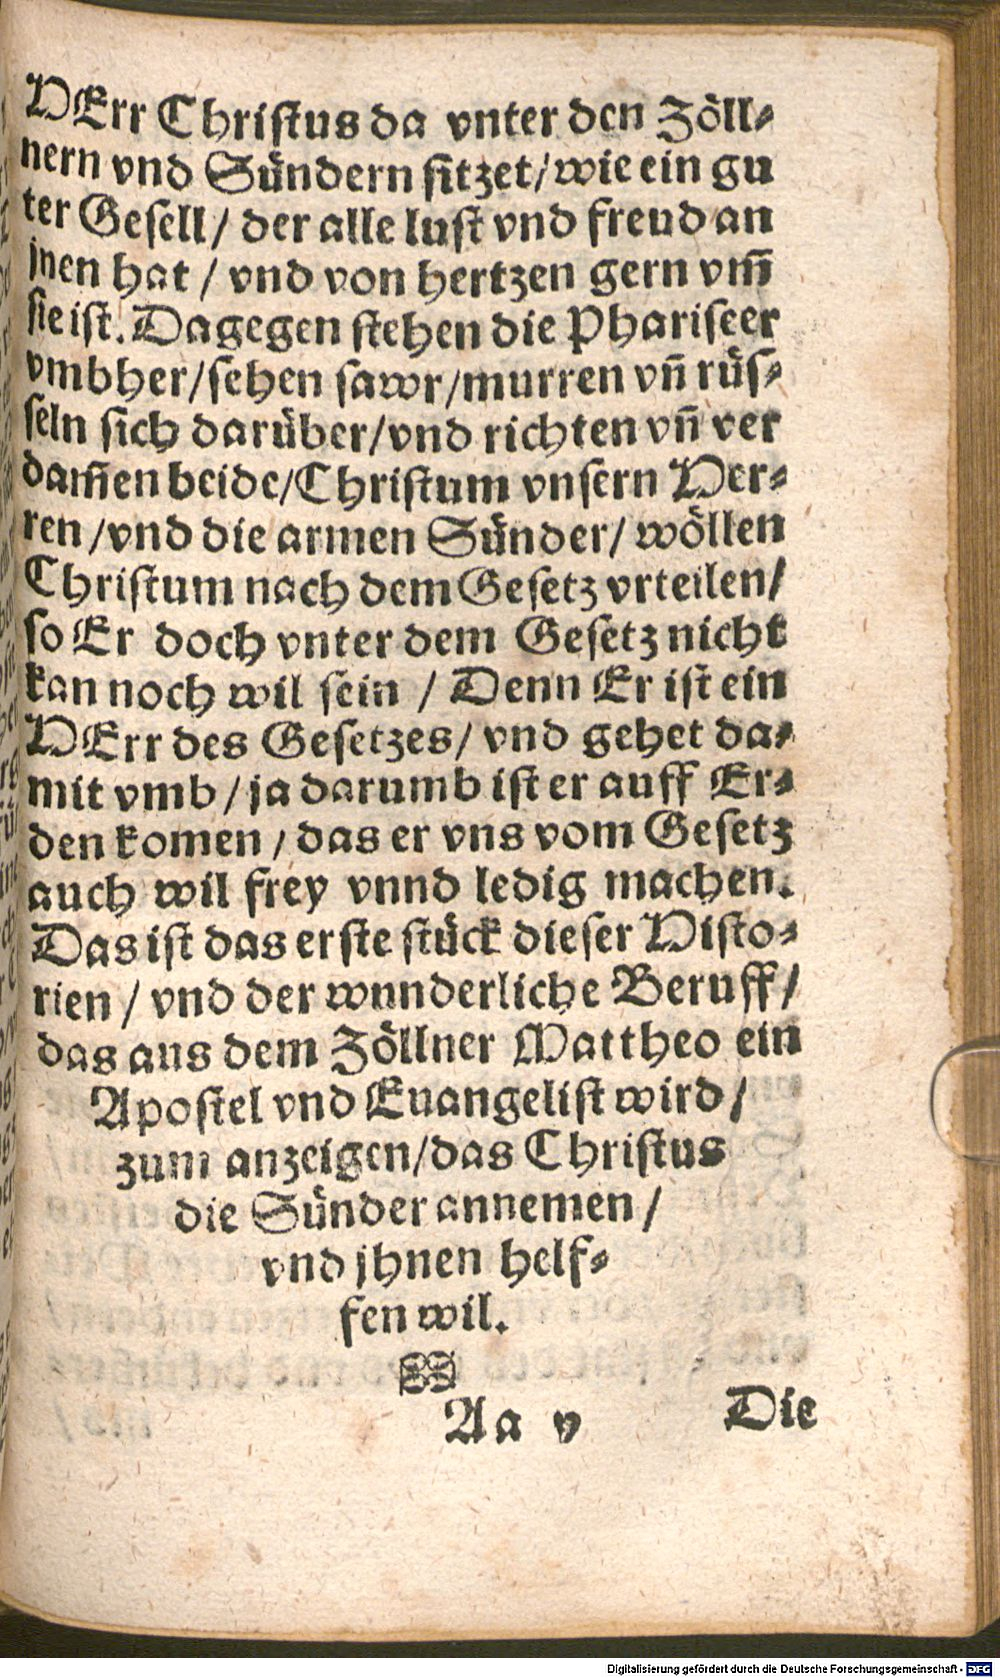 HErr Christus da vnter den Zöll⸗
nern vnd Sündern sitzet/ wie ein gu
ter Gesell/ der alle lust vnd freud an
jnen hat / vnd von hertzen gern vm̃
sie ist. Dagegen stehen die Phariseer
vmbher/sehen sawr/murren vñ rüs⸗
seln sich darüber/vnd richten vñ ver
dam̃en beide/Christum vnsern Her⸗
ren /vnd die armen Sünder/ wöllen
Christum nach dem Gesetz vrteilen/
so Er doch vnter dem Gesetz nicht
kan noch wil sein / Denn Er ist ein
HErr des Gesetzes/ vnd gehet da⸗
mit vmb / ja darumb ist er auff Er⸗
den komen / das er vns vom Gesetz
auch wil frey vnnd ledig machen.
Das ist das erste stück dieser Histo⸗
rien / vnd der wunderliche Beruff/
das aus dem Zöllner Mattheo ein
Apostel vnd Euangelist wird/
zum anzeigen/das Christus
die Sünder annemen/
vnd jhnen helf⸗
fen wil.
Aa v Die
Digitalisierung gefördert durch die Deutsche Forschungsgemeinschaft - DFG